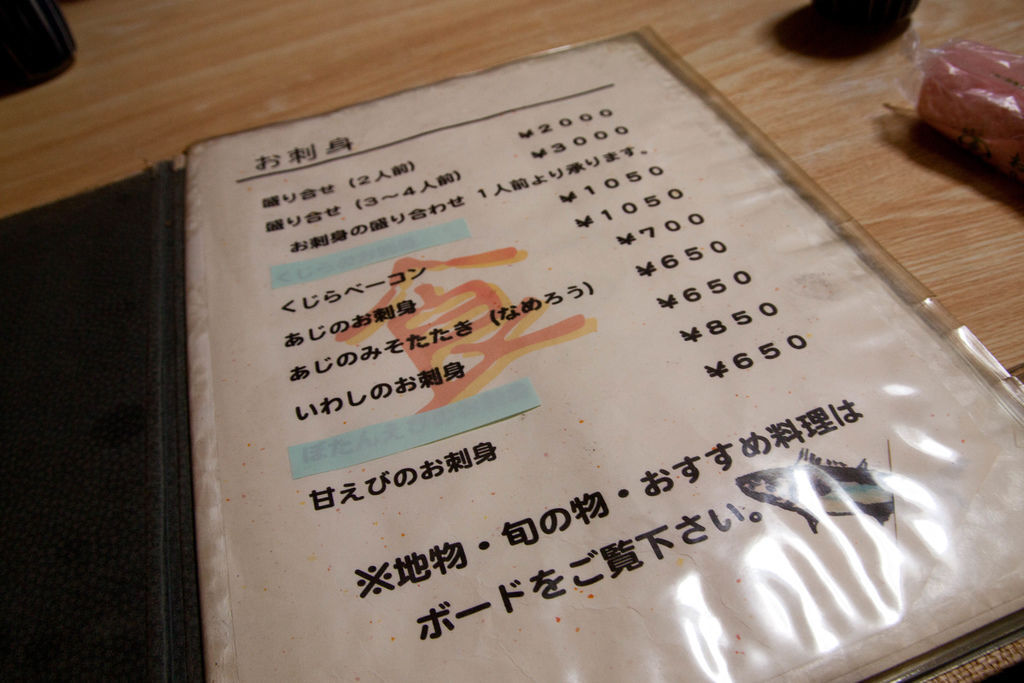 お刺身
盛り合せ（２人前） ¥２０００
盛り合せ（３〜４人前） ¥３０００
お刺身の盛り合わせ １人前より承ります。
くじらのお刺身 ¥１０５０
くじらベーコン ¥１０５０
あじのお刺身 ¥７００
あじのみそたたき（なめろう） ¥６５０
いわしのお刺身 ¥６５０
ぼたんえび ¥８５０
甘えびのお刺身 ¥６５０
食
※地物・旬の物・おすすめ料理は
ボードをご覧下さい。